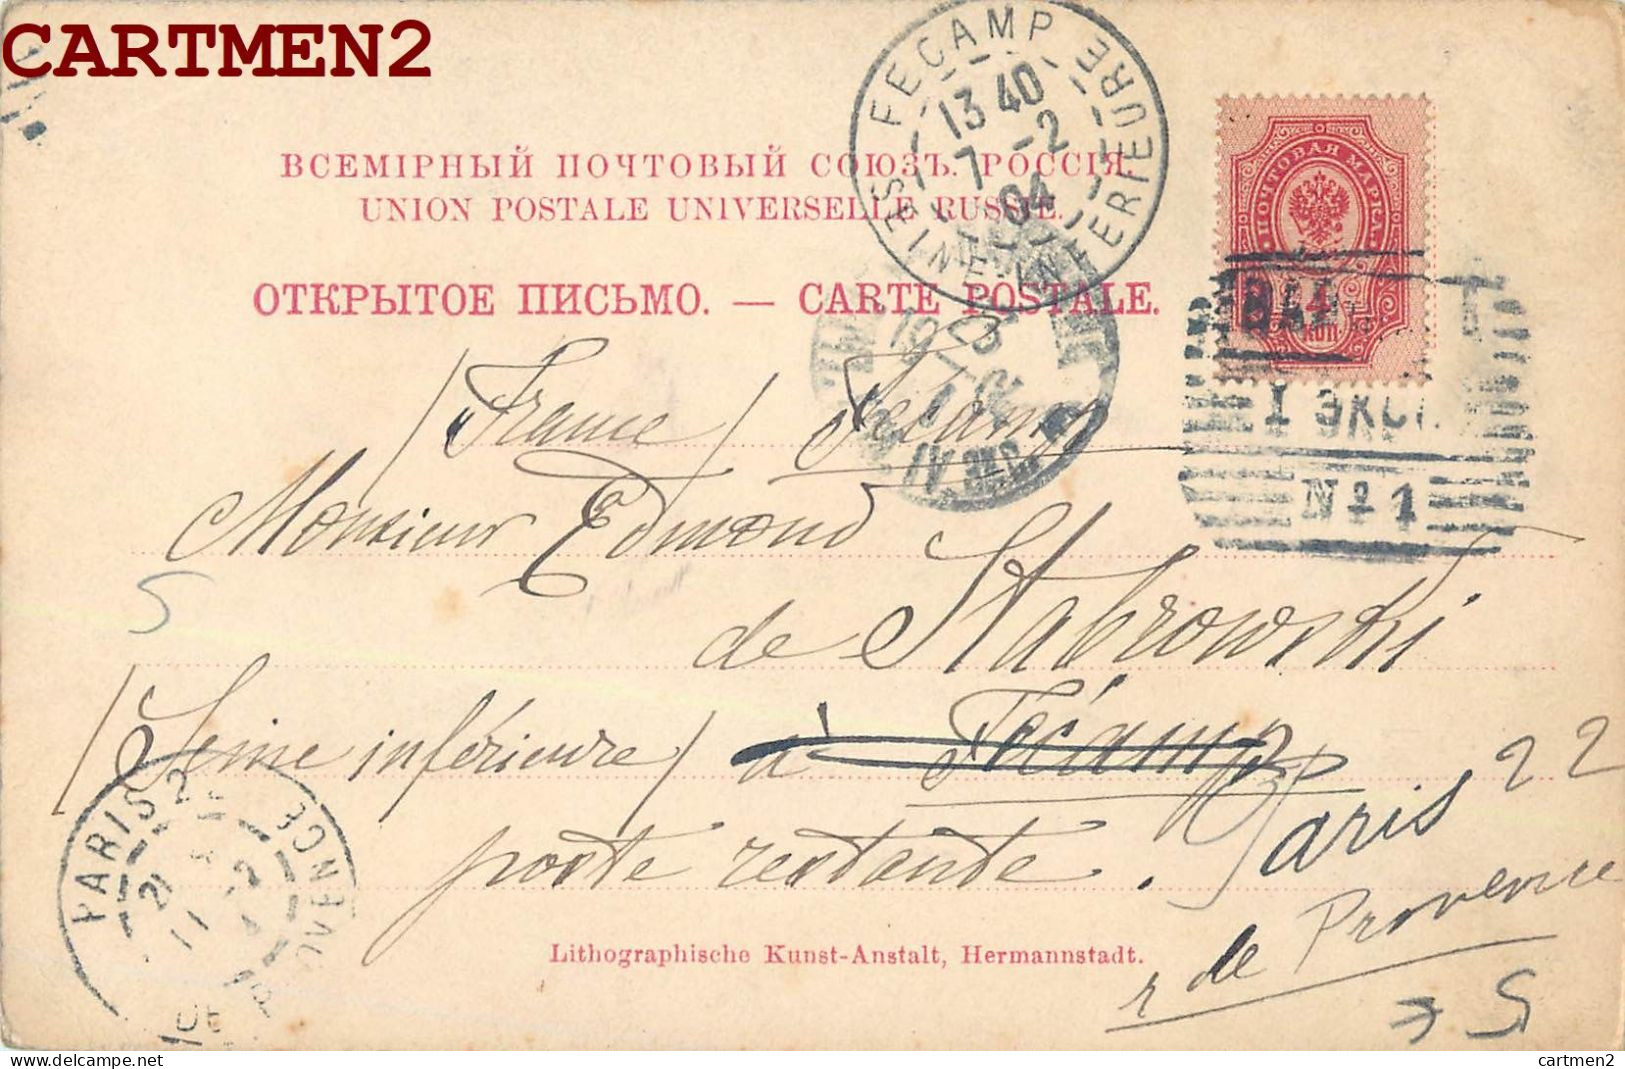 CARTMEN2
FECAMP
SEINE-INFERIEURE
13 40
7 -2
04
ВСЕМІРНЫЙ ПОЧТОВЫЙ СОЮЗЪ. РОССІЯ.
UNION POSTALE UNIVERSELLE RUSSIE.
ОТКРЫТОЕ ПИСЬМО. — CARTE POSTALE.
ПОЧТОВАЯ МАРКА.
4
КОП
I ЭКСП.
№ 1
(France) Fécamp
Monsieur Edmond
de Stabrowski
(Seine inférieure) à Fécamp
poste restante.
Paris 22
r de Provence
PARIS 2
21
11 2
R. DE PROVENCE
Lithographische Kunst-Anstalt, Hermannstadt.
cartmen2